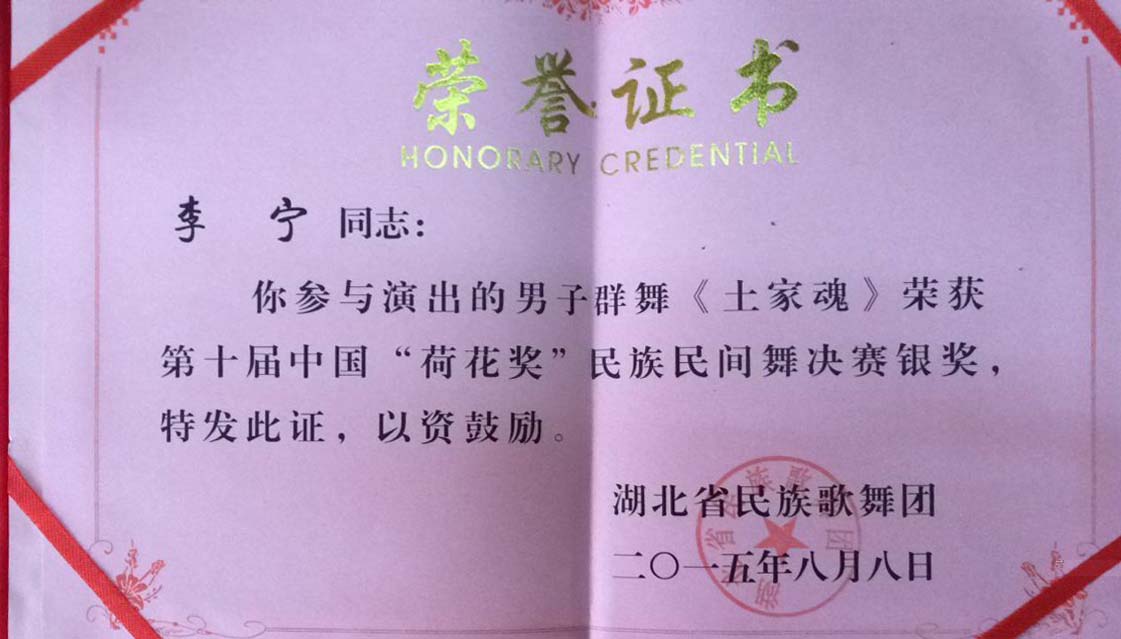 荣誉证书
HONORARY CREDENTIAL
李 宁 同志：
你参与演出的男子群舞《土家魂》荣获
第十届中国“荷花奖”民族民间舞决赛银奖，
特发此证，以资鼓励。
湖北省民族歌舞团
二〇一五年八月八日